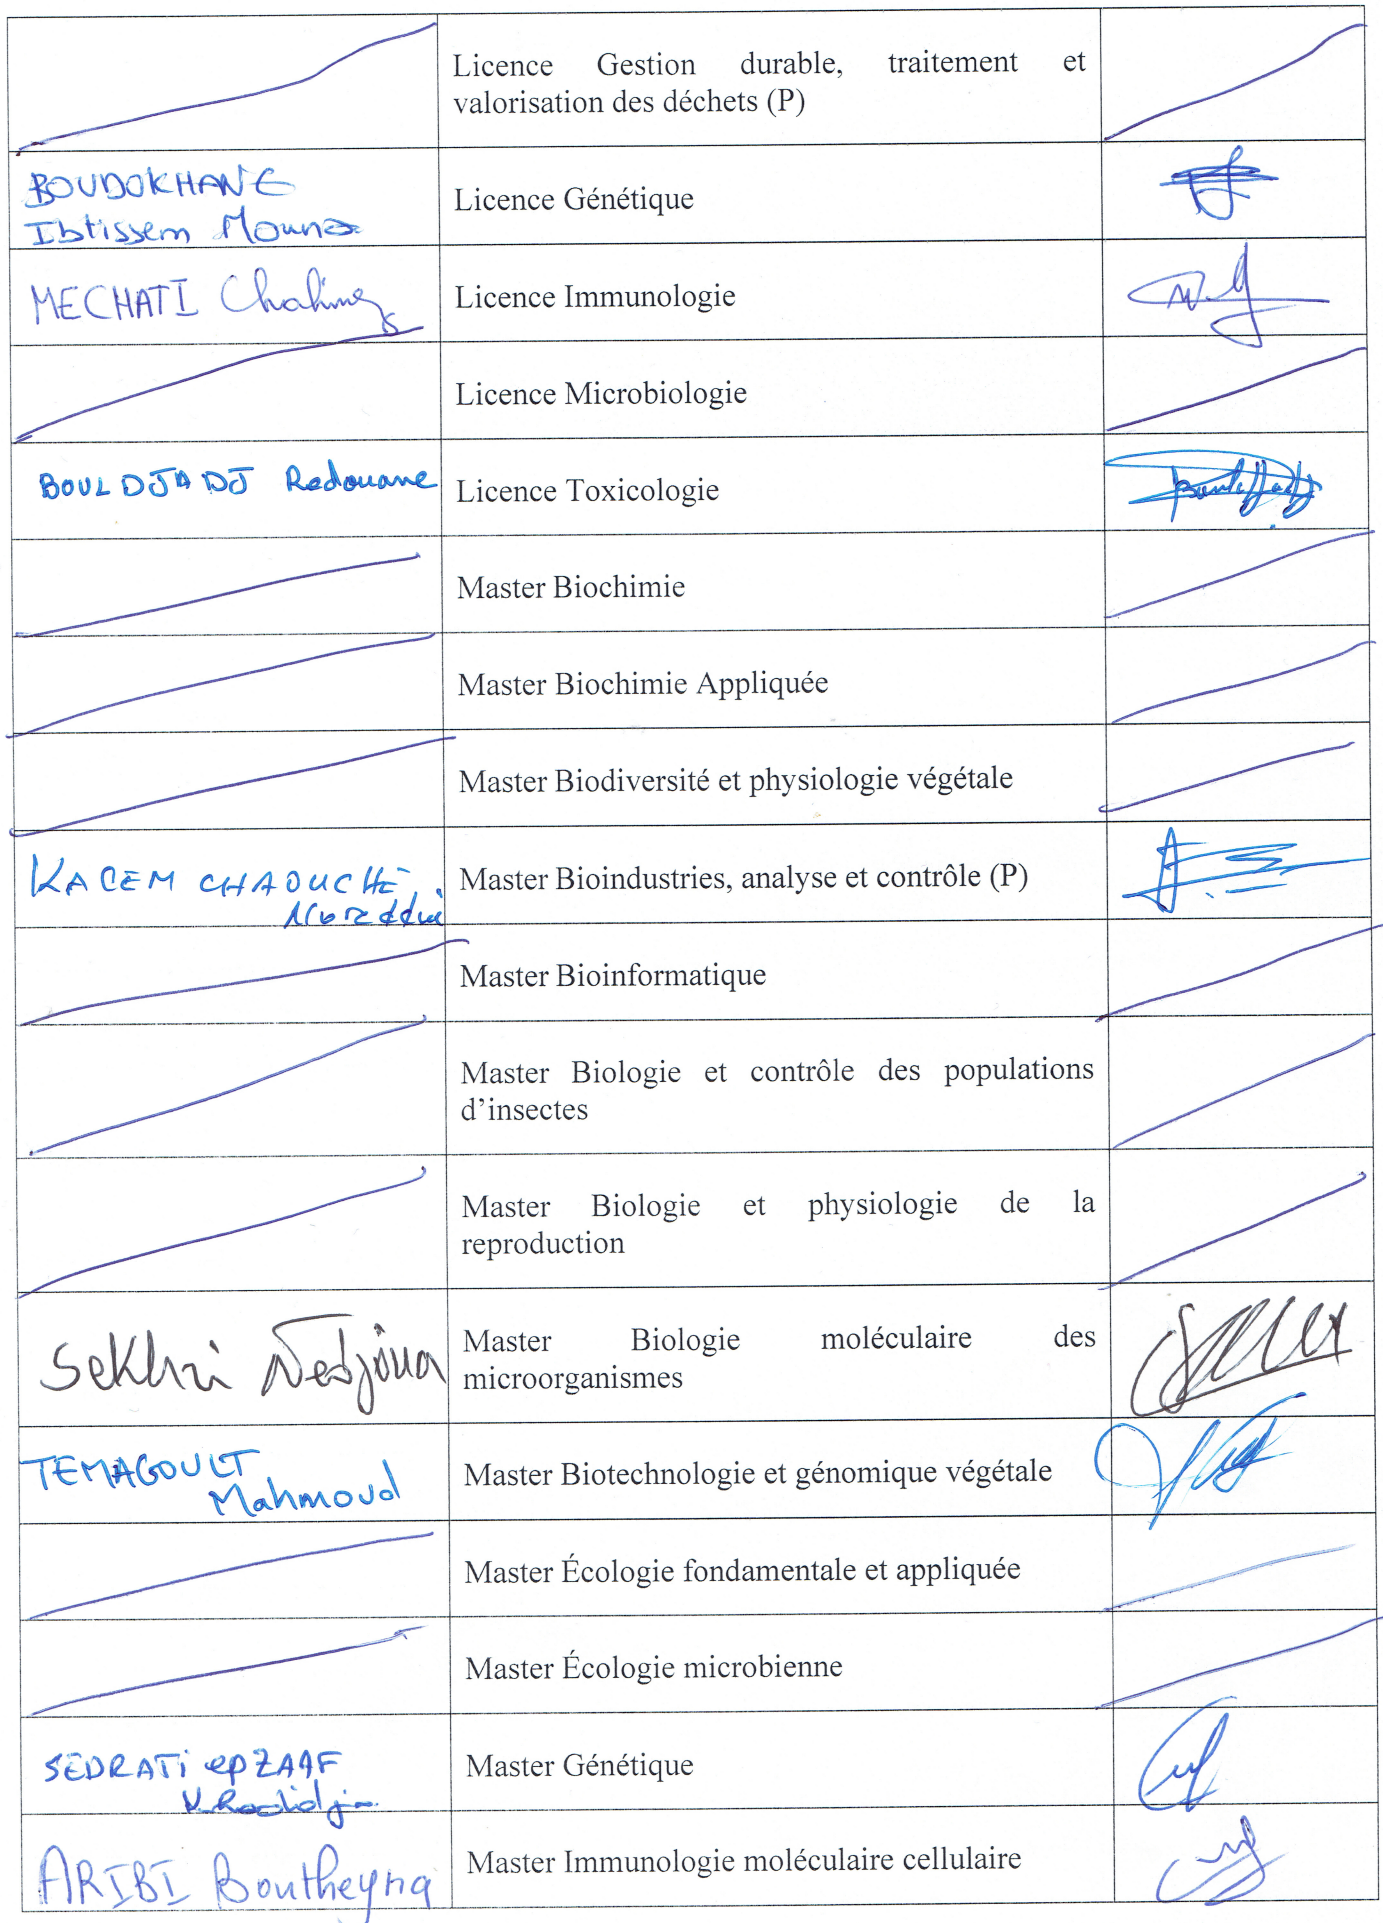 Licence Gestion durable, traitement et
valorisation des déchets (P)
BOUDOKHANE
Ibtissem Mouna
Licence Génétique
MECHATI Chahinez
Licence Immunologie
Licence Microbiologie
BOULDJADJ Redouane
Licence Toxicologie
Master Biochimie
Master Biochimie Appliquée
Master Biodiversité et physiologie végétale
KACEM CHAOUCHE
Noreddine
Master Bioindustries, analyse et contrôle (P)
Master Bioinformatique
Master Biologie et contrôle des populations
d’insectes
Master Biologie et physiologie de la
reproduction
Sekhri Nedjoua
Master Biologie moléculaire des
microorganismes
TEMAGOULT
Mahmoud
Master Biotechnologie et génomique végétale
Master Écologie fondamentale et appliquée
Master Écologie microbienne
SEDRATI ep ZAAF
Master Génétique
ARIBI Boutheyna
Master Immunologie moléculaire cellulaire